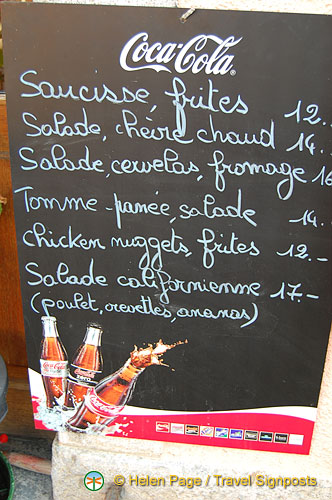 Coca-Cola
Saucisse, frites 12.-
Salade, chèvre chaud 14.
Salade, cervelas, fromage 16
Tomme panée, salade 14.
chicken nuggets, frites 12.-
Salade californienne 17.-
(poulet, crevettes, ananas)
© Helen Page / Travel Signposts